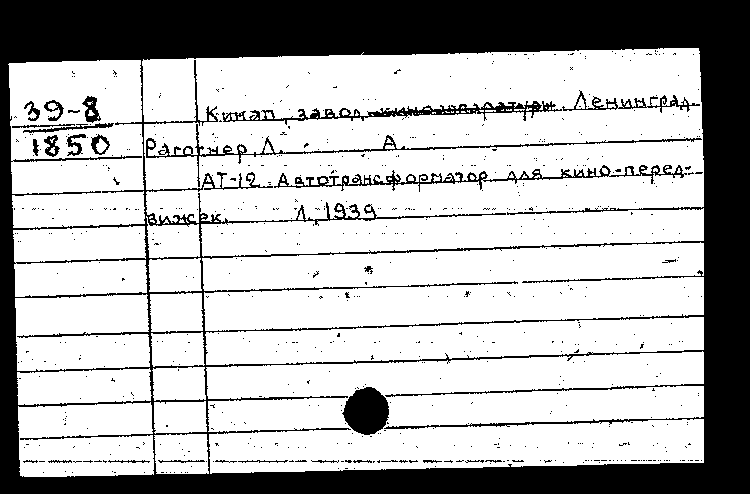 39-8
1850
Кинап, завод киноаппаратуры. Ленинград.
Рагочнер, Л. А.
АТ-12. Автотрансформатор для кино-перед-
вижек. Л., 1939